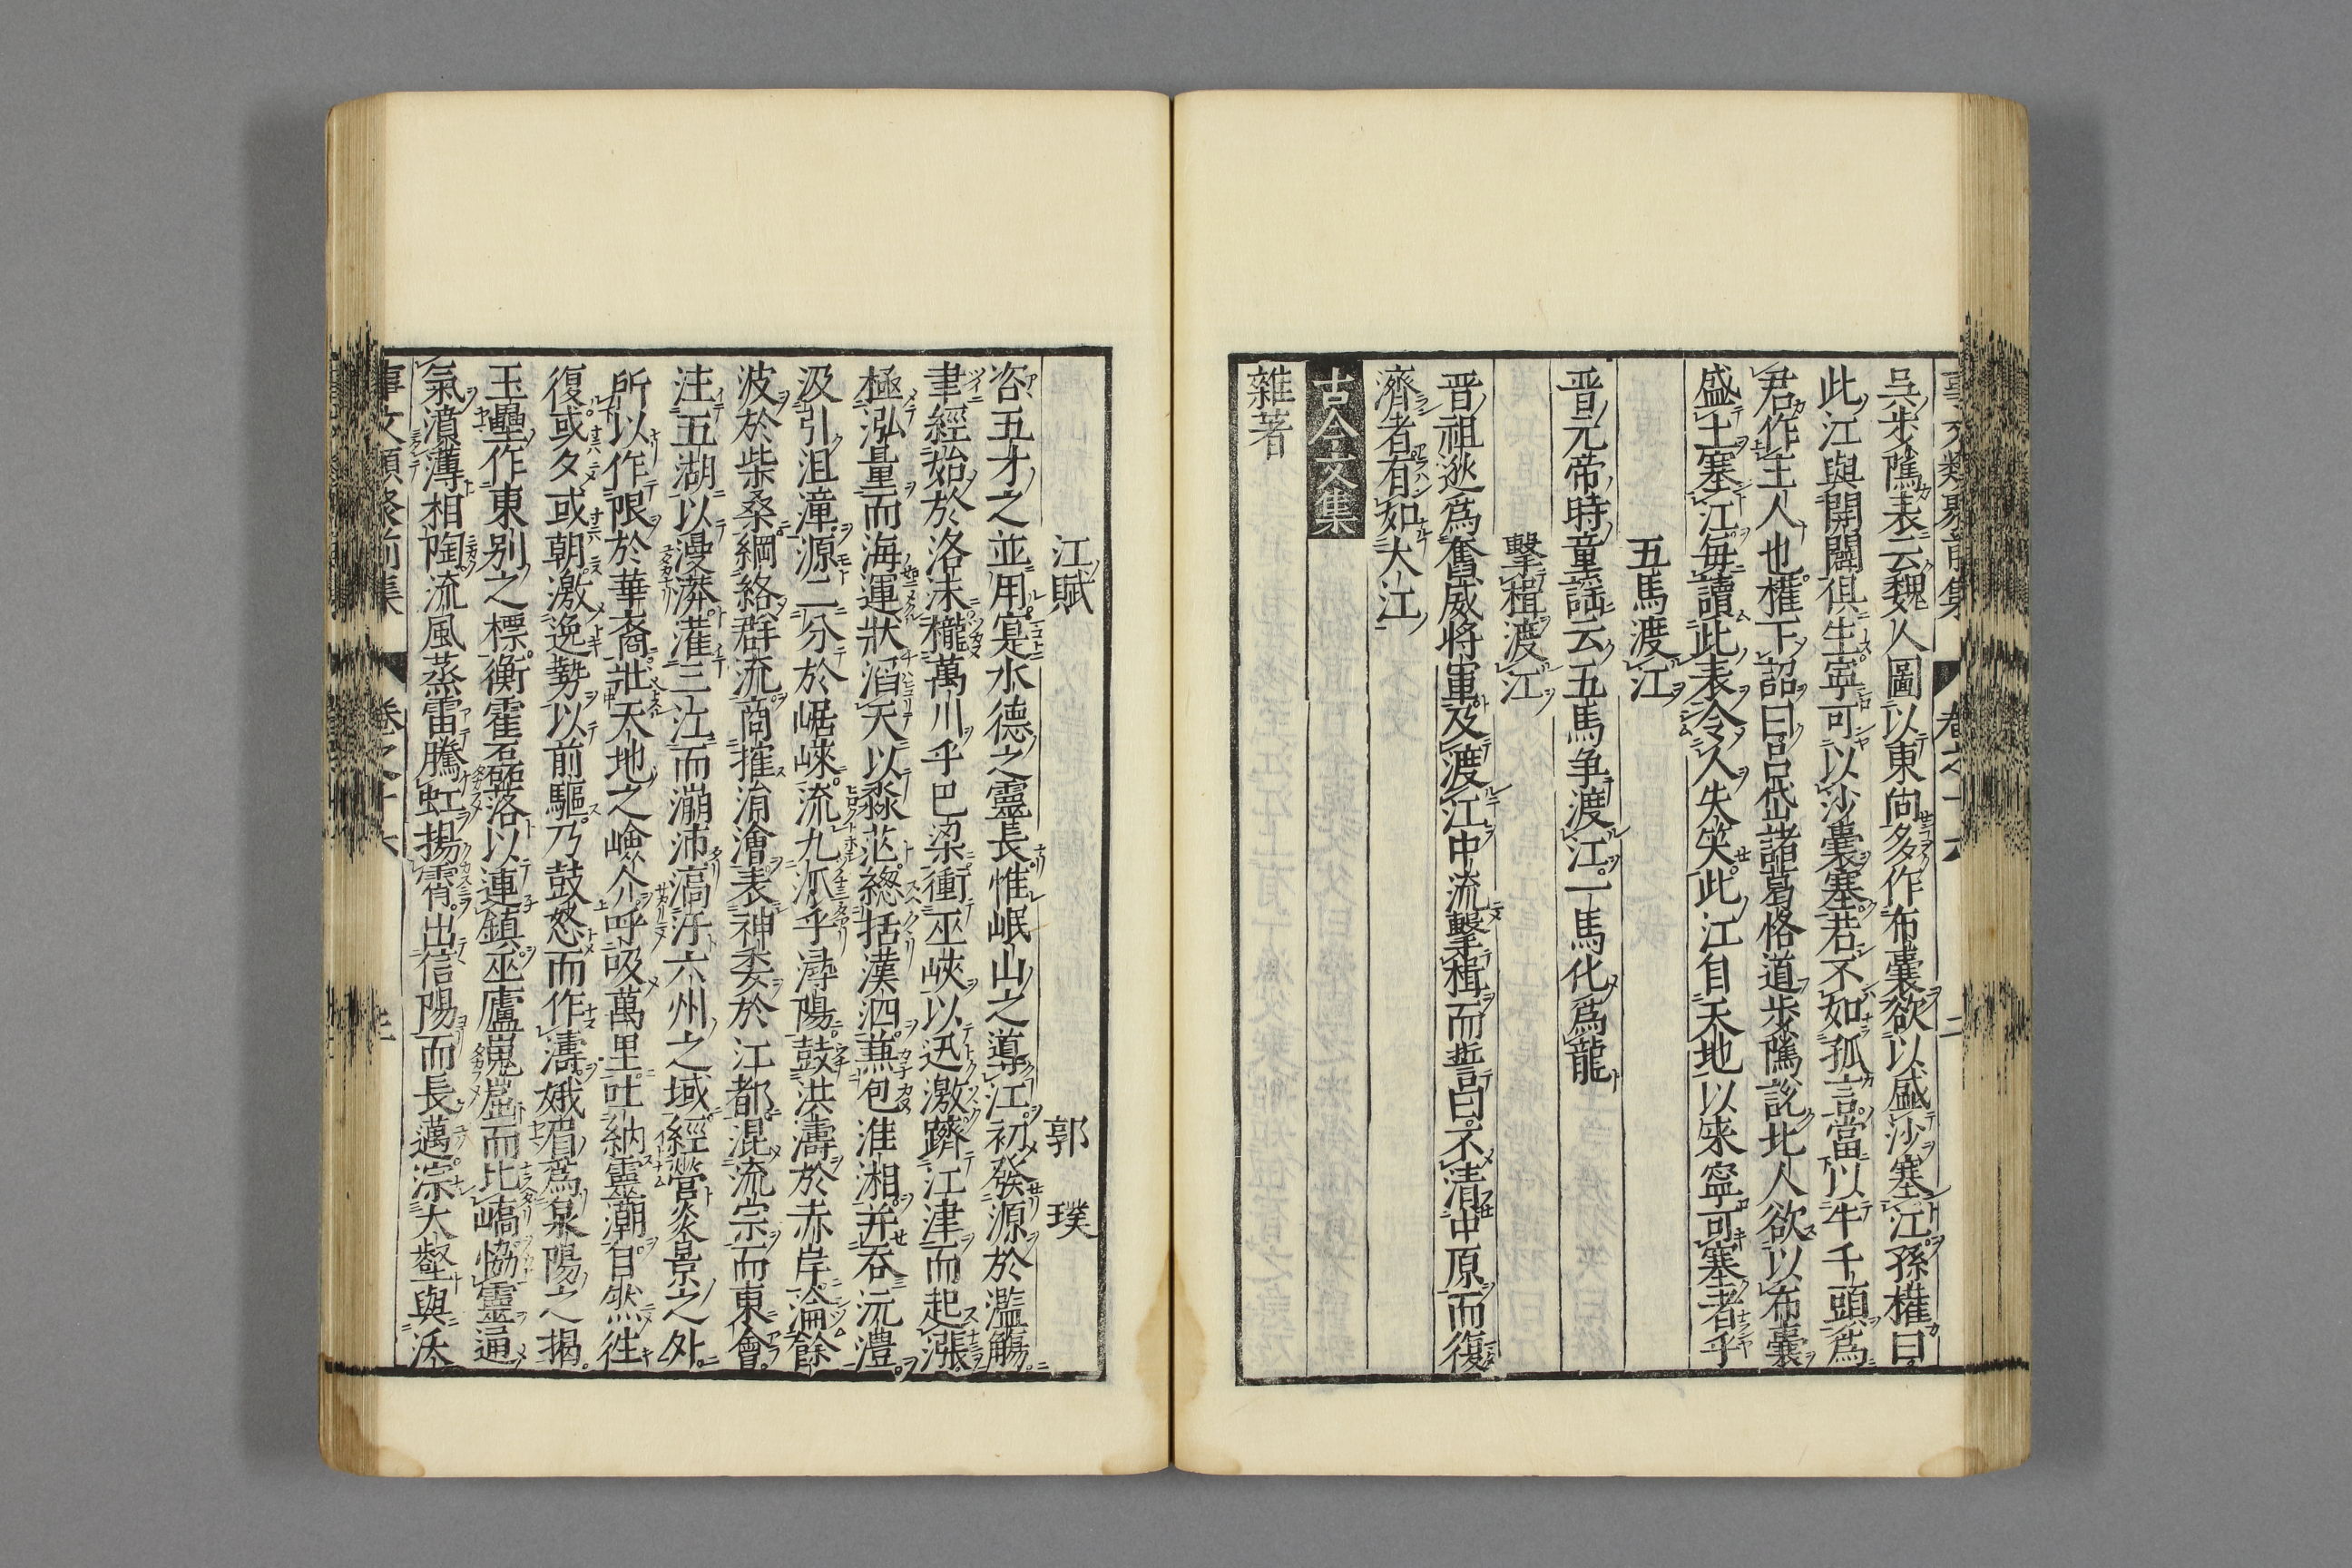 事文類聚前集 卷之十六 二
吳步隲表云魏人圖以東向多作布囊欲以盛沙塞江孫權曰
此江與開闢俱生寧可以沙囊塞若不如孤言當以牛千頭爲
君作主人也權下詔曰呂岱諸葛恪道步隲說北人欲以布囊
盛土塞江每讀此表令人失笑此江自天地以來寧可塞者乎
五馬渡江
晋元帝時童謡云五馬争渡江一馬化爲龍
擊楫渡江
晋祖逖爲奮威将軍及渡江中流擊楫而誓曰不清中原而復
濟者有如大江
古今文集
雜著
江賦 郭璞
咨五才之並用寔水德之靈長惟岷山之導江初發源於濫觴
聿經始於洛沬櫳萬川乎巴梁衝巫峽以迅激躋江津而起漲
極泓量而海運狀滔天以淼茫緫括漢泗蕪包淮湘并吞沅澧
汲引沮漳源二分於崌崍流九泒乎潯陽鼓洪濤於赤岸淪餘
波於柴桑綱絡群流商搉涓澮表神委於江都混流宗而東會
注五湖以漫漭灌三江而漰沛滈汗六州之域經營炎景之外
所以作限於華裔壯天地之嶮介呼吸萬里吐納靈潮自然徃
復或夕或朝激逸勢以前驅乃鼓怒而作濤娥眉爲泉陽之揭
玉壘作東别之標衡霍磊落以連鎮巫廬嵬崫而比嶠恊靈通
氣濆薄相陶流風蒸雷騰虹揚霄出信陽而長邁淙大壑與沃
事文類聚前集 卷之十六 三